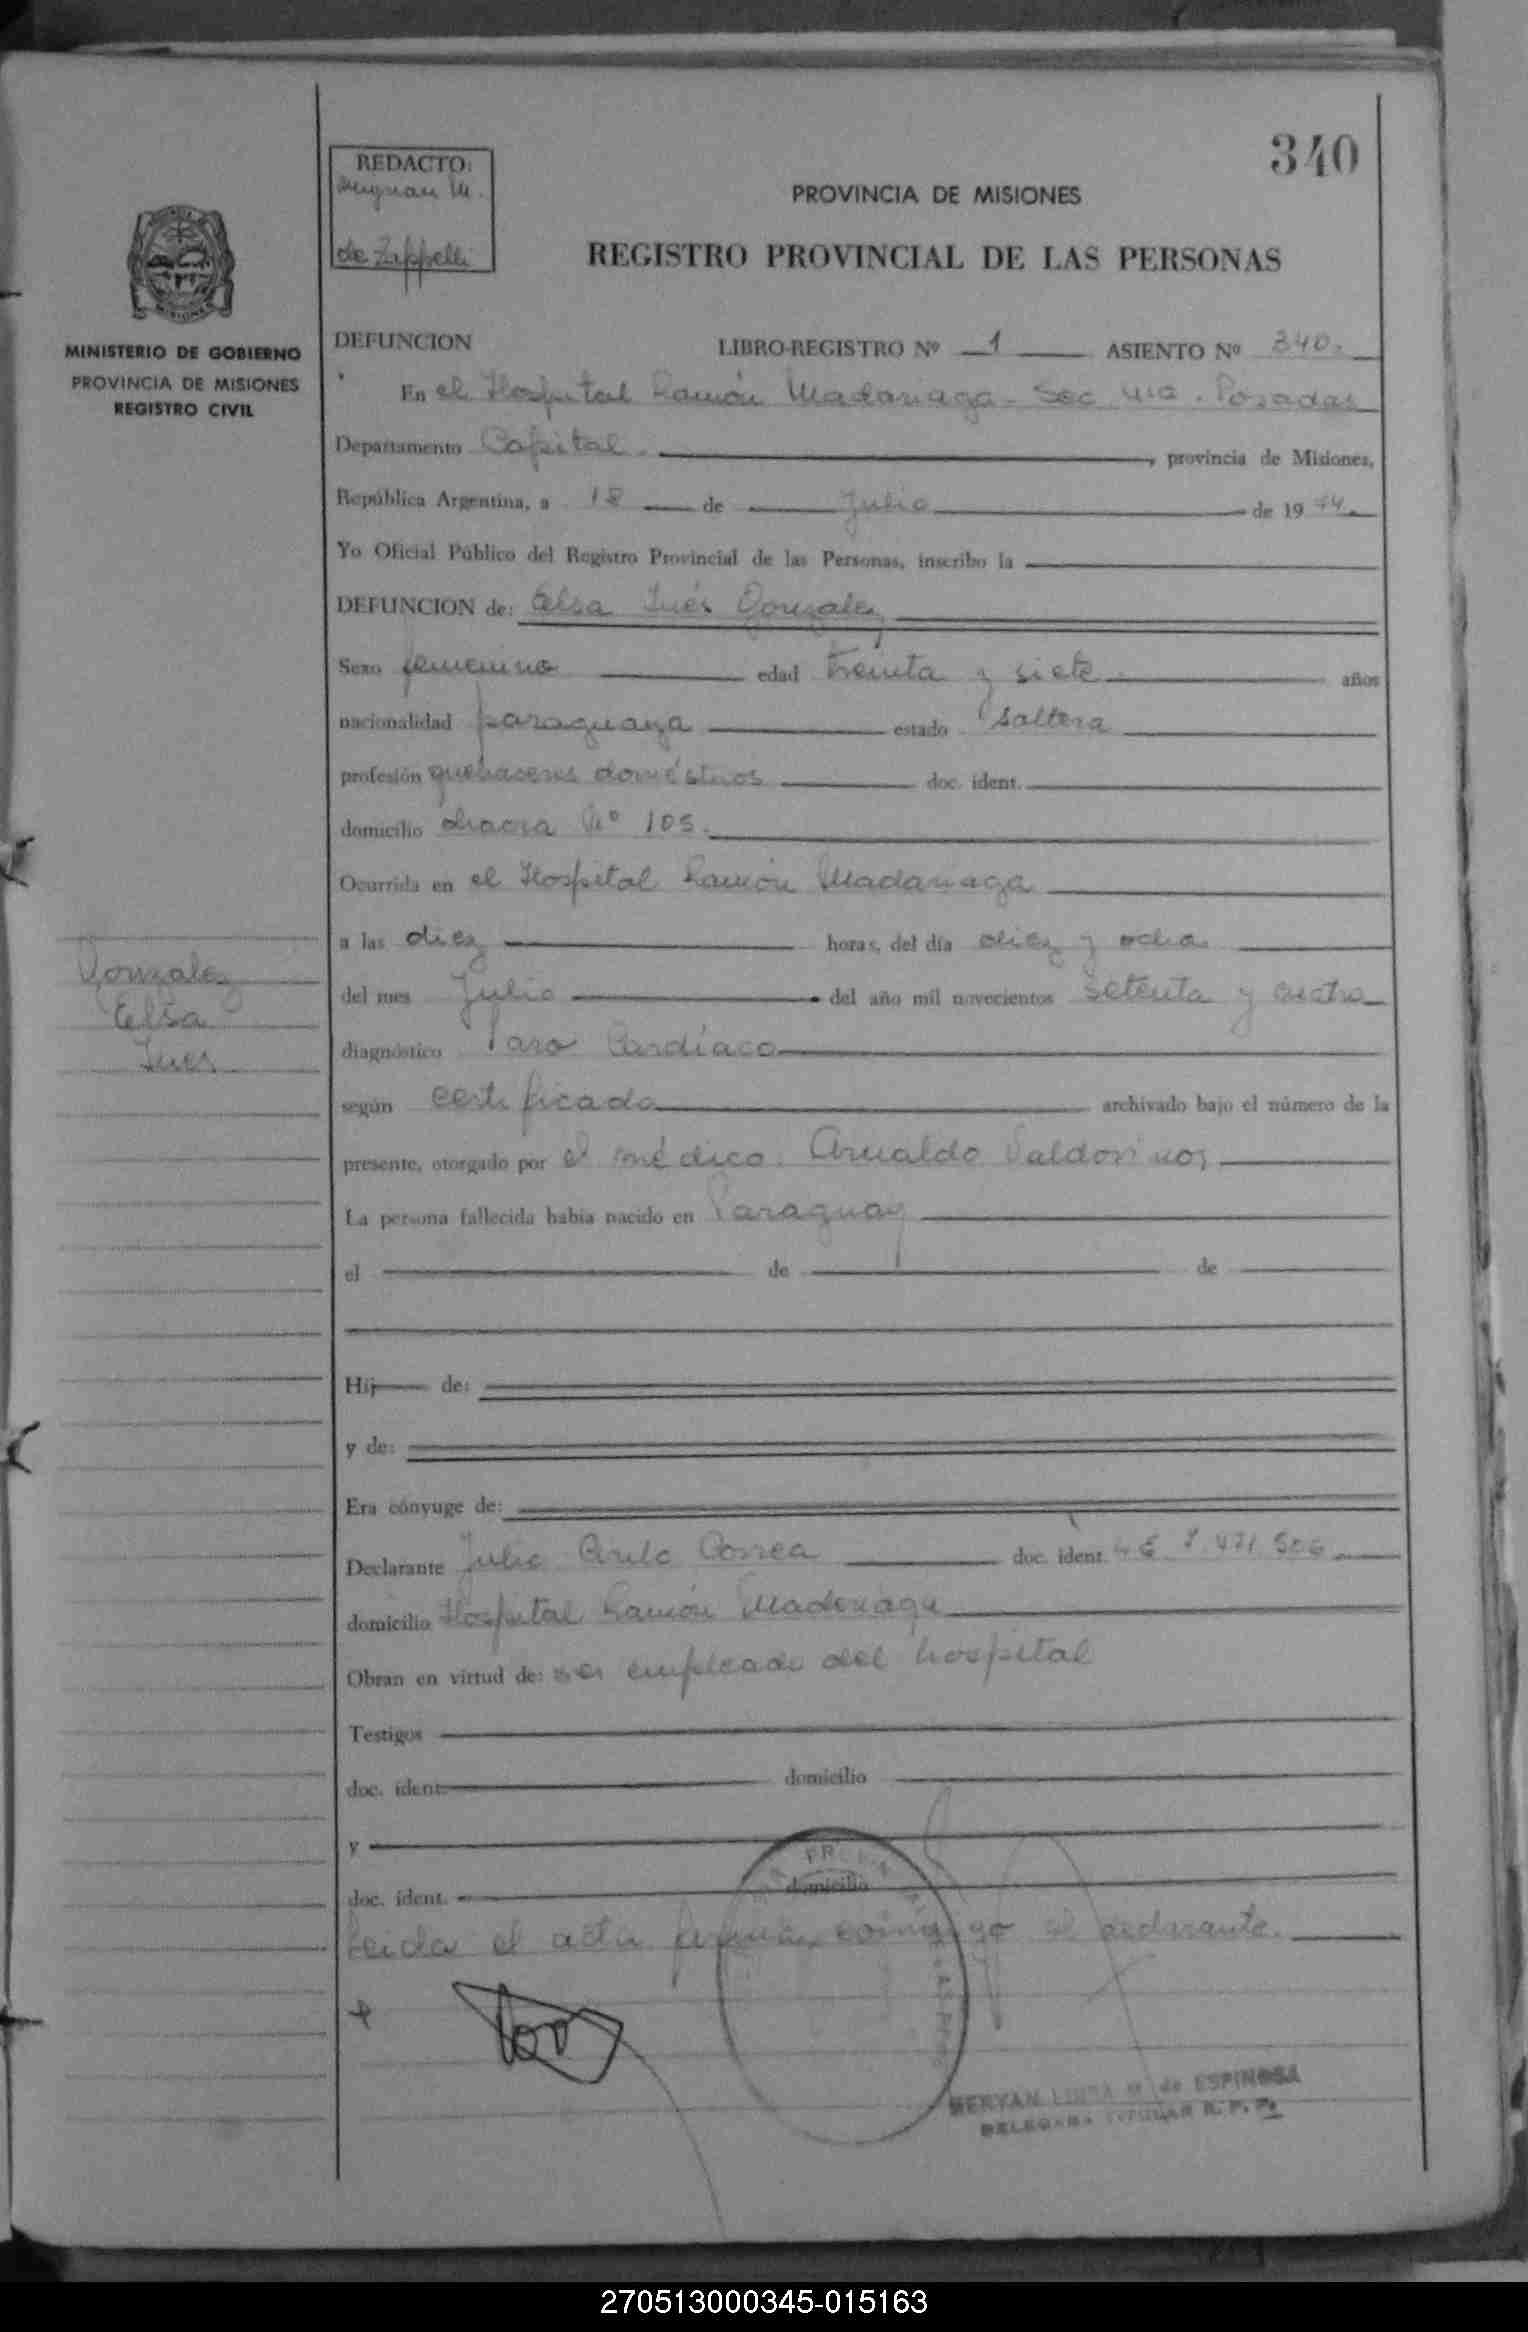 340
REDACTO:
M.
de Zappelli
PROVINCIA DE MISIONES
REGISTRO PROVINCIAL DE LAS PERSONAS
MISIONES
MINISTERIO DE GOBIERNO
PROVINCIA DE MISIONES
REGISTRO CIVIL
DEFUNCION LIBRO-REGISTRO Nº 1 ASIENTO Nº 340.
En el Hospital Ramón Madariaga - Sec. Posadas
Departamento Capital. , provincia de Misiones,
República Argentina, a 18 de Julio de 1974.
Yo Oficial Público del Registro Provincial de las Personas, inscribo la
DEFUNCION de: Elsa Inés Gonzalez
Sexo femenino edad treinta y siete años
nacionalidad paraguaya estado soltera
profesión quehaceres domésticos doc. ident.
domicilio chacra Nº 105.
Ocurrida en el Hospital Ramón Madariaga
a las diez horas, del día diez y ocho
Gonzalez
Elsa
Ines
del mes Julio del año mil novecientos setenta y cuatro
diagnóstico Paro Cardíaco
según certificado archivado bajo el número de la
presente, otorgado por el médico. Arnaldo Valdovinos
La persona fallecida había nacido en Paraguay
el de de
Hij de:
y de:
Era cónyuge de:
Declarante Julio Cirilo Correa doc. ident.
domicilio Hospital Ramón Madariaga
Obran en virtud de: ser empleado del hospital
Testigos
doc. ident. domicilio
y
doc. ident. domicilio
Leida el acta firma conmigo el declarante.
de ESPINOSA
R. P. P.
270513000345-015163